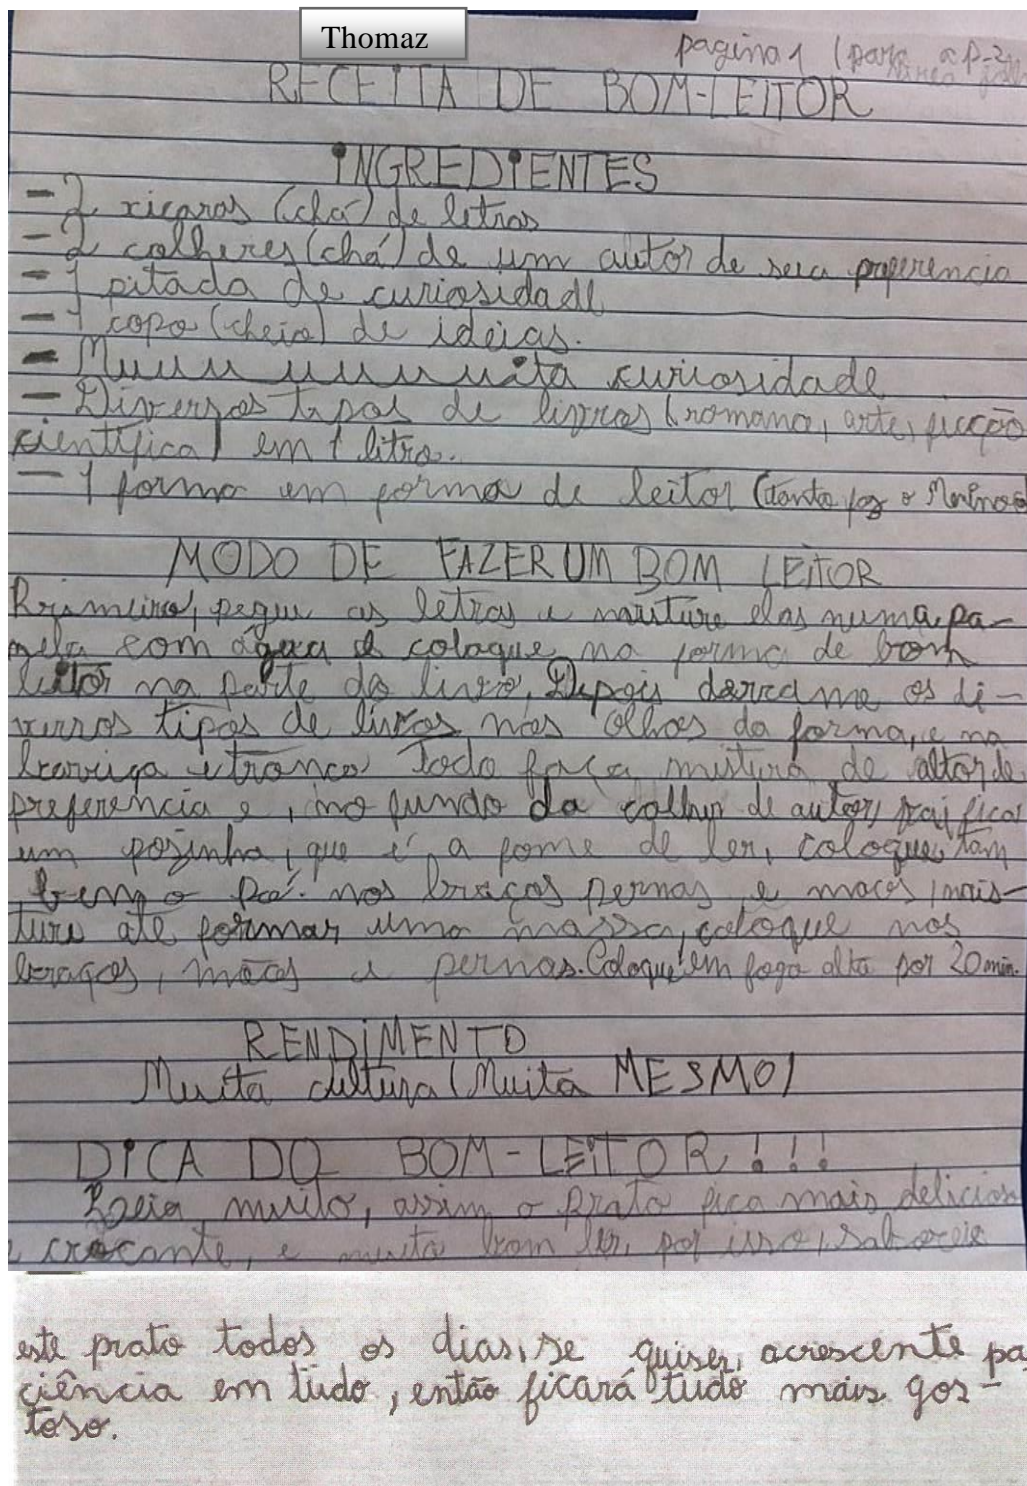 Thomaz
pagina 1 (para a p-2
RECEITA DE BOM-LEITOR
INGREDIENTES
- 2 xicaras (chá) de letras
- 2 colheres (chá) de um autor de seu preferencia
- 1 pitada de curiosidade
- 1 copo (cheio) de ideias.
- Muuuu uuuuuuita curiosidade
- Diversos tipos de livros (romance, arte, ficção
científica) em 1 litro.
- 1 forma em forma de leitor (tanto faz o Menino
MODO DE FAZER UM BOM LEITOR
Primeiro, pegue as letras e misture elas numa pa-
nela com água e coloque na forma de bom
leitor na parte do livro. Depois derrame os di-
versos tipos de livros nos olhos da forma, e na
barriga e tronco todo faça mistura de altor de
preferência e, no fundo da colher de autor, vai ficar
um pozinho, que é a fome de ler, coloque tam
bem o pó nos braços pernas e maos, mis-
ture até formar uma massa, coloque nos
braços, mãos e pernas. Coloque em fogo alto por 20 min.
RENDIMENTO
Muita cultura (Muita MESMO)
DICA DO BOM-LEITOR!!!
Leia muito, assim o prato fica mais delicios
e crocante, e muito bom ler, por isso, saboreie
este prato todos os dias, se quiser, acrescente pa
ciência em tudo, então ficará tudo mais gos-
toso.